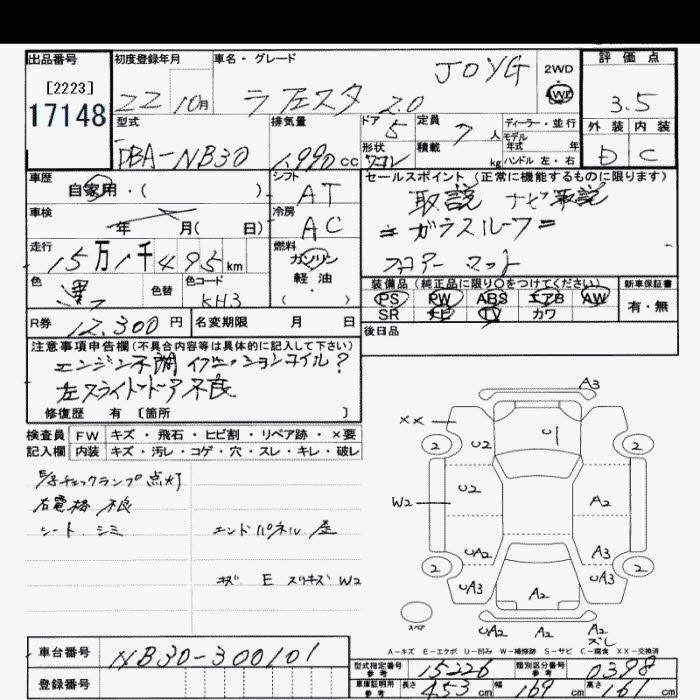 出品番号 初度登録年月 車名・グレード 評価点
[2223]
17148
22 10月 ラフェスタ 2.0 JOYG 2WD 4WD 3.5
型式 排気量 ドア・ 定員 ディーラー・並行 外装 内装
DBA-NB30 1,990 cc 5 7 人 モデル年式 年 D C
形状 ワゴン 積載 kg ハンドル 左・右
車歴 自家用・( ) シフト AT セールスポイント(正常に機能するものに限ります)
車検 年 月( 日) 冷房 AC 取説 ナビ取説
=ガラスルーフ=
フロアーマット
走行 15万1千495km 燃料 ガソリン 軽油・( )
色 黒 色替 色コード KH3
装備品(純正品に限り○をつけてください) 新車保証書
PS PW ABS エアB AW 有・無
SR ナビ TV カワ
R券 12,300円 名変期限 月 日
後日品
注意事項申告欄(不具合内容等は具体的に記入して下さい)
エンジン不調 イグニッションコイル?
左スライドドア不良
修復歴 有 〔箇所 〕
検査員記入欄 FW キズ・飛石・ヒビ割・リペア跡・×要
内装 キズ・汚レ・コゲ・穴・スレ・キレ・破レ
E/gチェックランプ点灯
右電格 不良
シート シミ エンドパネル 歪
キズ E スリキズ W2
A3
XX U2 U1
2 2
W2 U2 A2
UA2 A3
2 2
UA3 UA3
A2
スペア UA2 A2 A2
ズレ
A-キズ E-エクボ U-凹み W-補修跡 S-サビ C-腐食 XX-交換済
車台番号 NB30-300101
登録番号
型式指定番号 参考 15226 類別区分番号 参考 0398
車庫証明用 参考 長さ 453 cm 幅 169 cm 高さ 161 cm